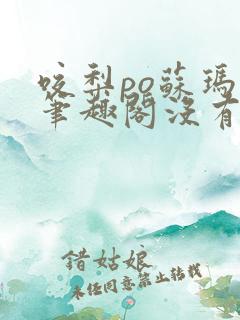 咬梨po蘇瑪
筆趣閣沒有
錯姑娘
未經同意禁止轉載